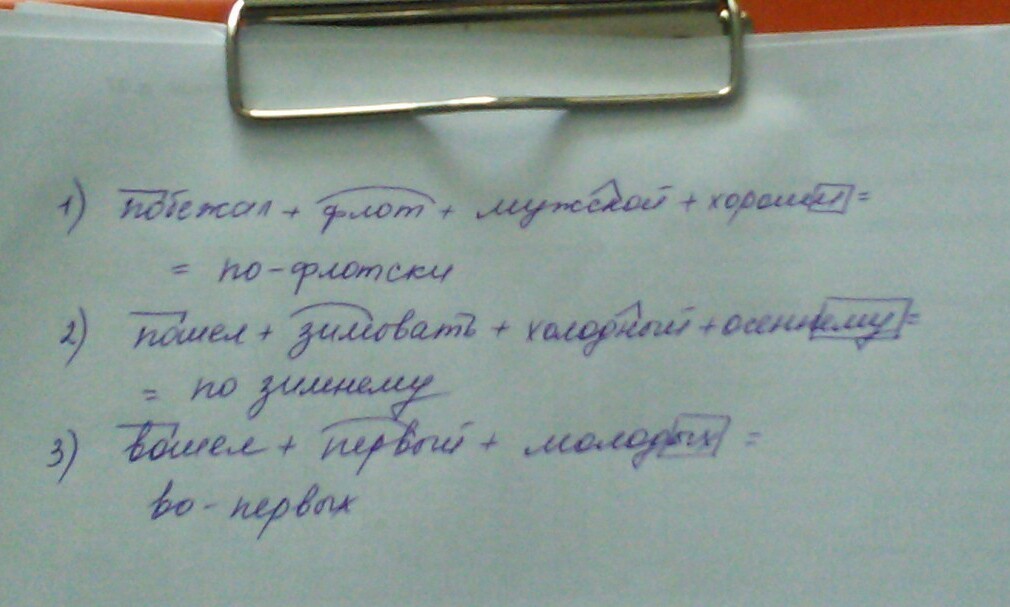 1) побежал + флот + мужской + хороши =
= по-флотски
2) пошел + зимовать + холодный + осеннему =
= по зимнему
3) вошел + первый + молодых =
во-первых